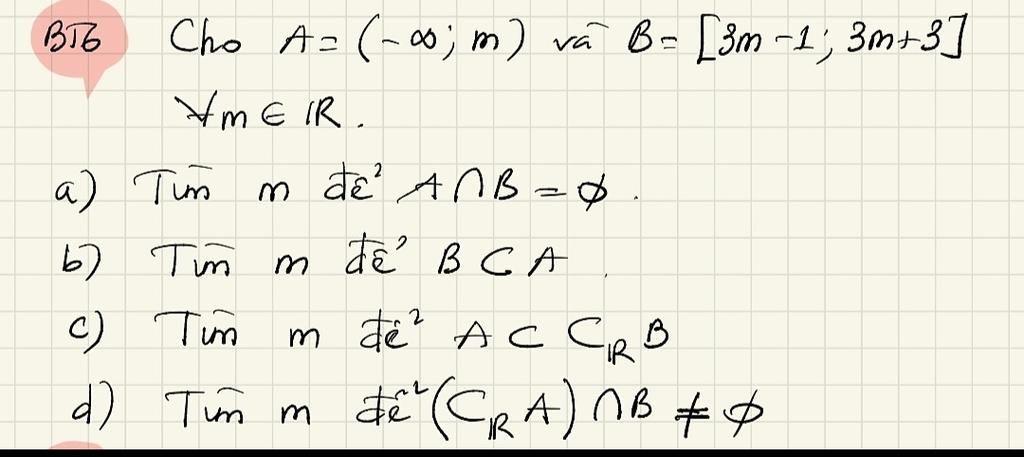 BT6 Cho A = (-∞; m) và B = [3m-1; 3m+3]
∀m ∈ ℝ.
a) Tìm m để A∩B = ∅.
b) Tìm m để B ⊂ A.
c) Tìm m để A ⊂ C_ℝ B
d) Tìm m để (C_ℝ A) ∩ B ≠ ∅